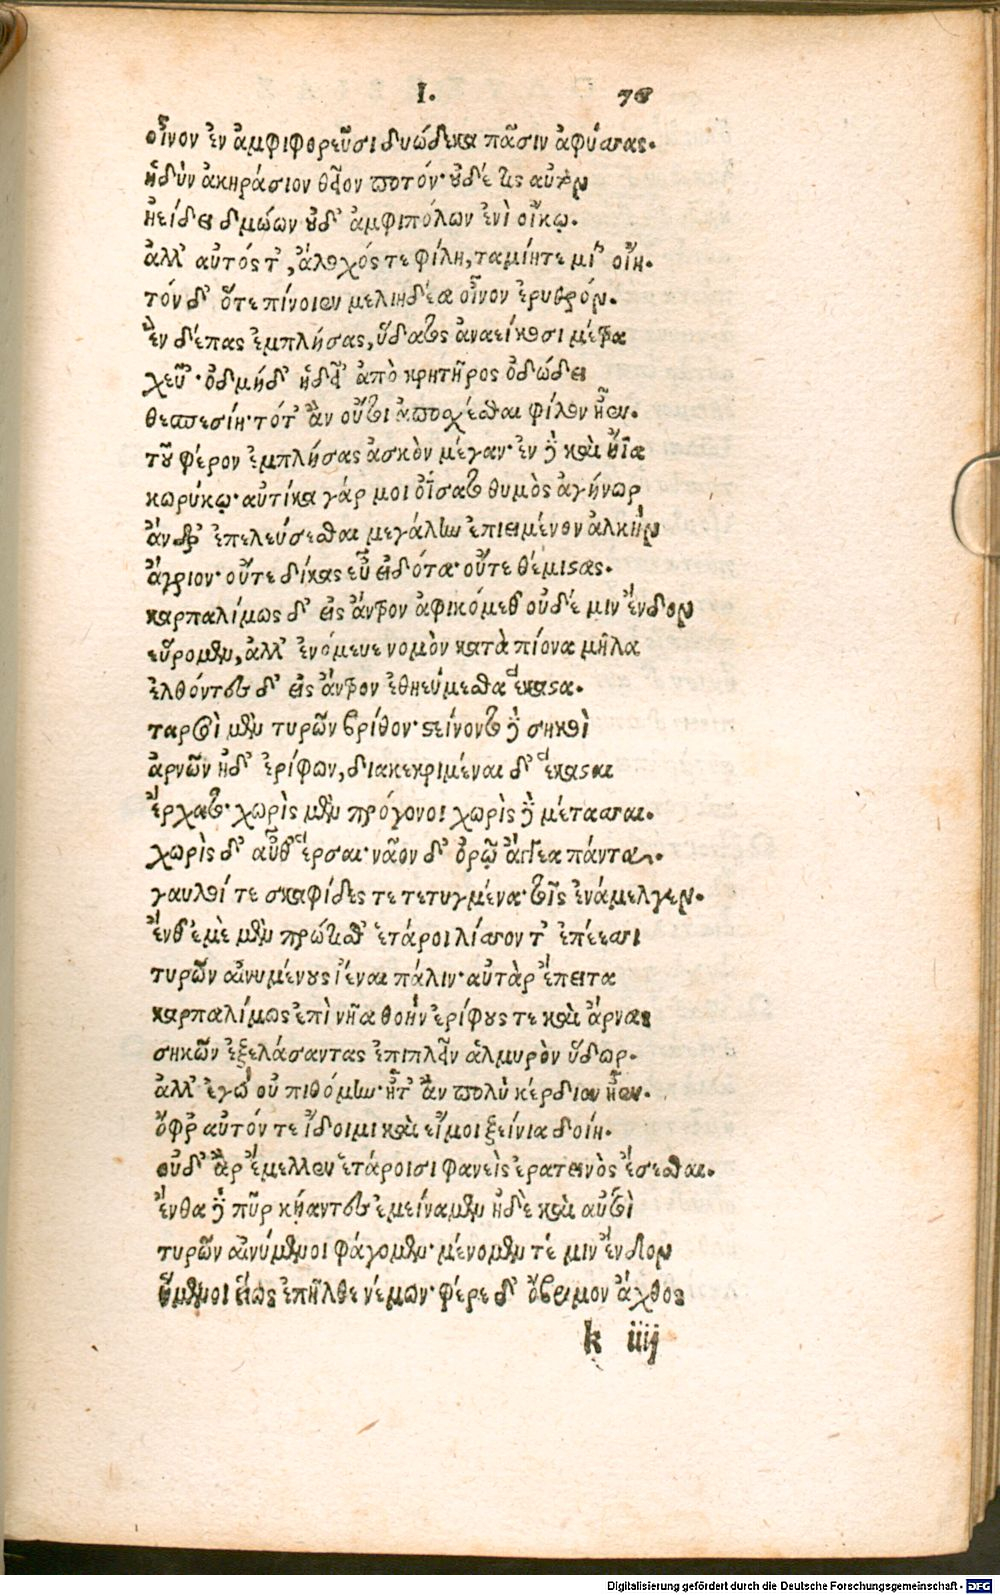 I. 78
οἶνον ἐν ἀμφιφορεῦσι δυώδεκα πᾶσιν ἀφύσσας.
ἡδὺν ἀκηράσιον θεῖον ποτόν· οὐδέ τις αὐτὸν
ἠείδει δμώων οὐδ' ἀμφιπόλων ἐνὶ οἴκῳ.
ἀλλ' αὐτός τ', ἄλοχός τε φίλη, ταμίητε μί' οἴη.
τόν δ' ὅτε πίνοιεν μελιηδέα οἶνον ἐρυθρόν.
ἓν δέπας ἐμπλήσας, ὕδατος ἀναείκοσι μέτρα
χεῦ'· ὀδμήδ' ἡδεῖ' ἀπὸ κρητῆρος ὀδώδει
θεσπεσίη· τότ' ἂν οὔτοι ἀποσχέσθαι φίλον ἦεν.
τοῦ φέρον ἐμπλήσας ἀσκὸν μέγαν· ἐν δὲ καὶ ᾖα
κωρύκῳ· αὐτίκα γάρ μοι ὀΐσατο θυμὸς ἀγήνωρ
ἄνδρ' ἐπελεύσεσθαι μεγάλην ἐπιειμένον ἀλκὴν
ἄγριον· οὔτε δίκας εὖ εἰδότα· οὔτε θέμιστας.
καρπαλίμως δ' εἰς ἄντρον ἀφικόμεθ' οὐδέ μιν ἔνδον
εὕρομεν, ἀλλ' ἐνόμευε νομὸν κατὰ πίονα μῆλα
ἐλθόντες δ' εἰς ἄντρον ἐθηεύμεσθα ἕκαστα.
ταρσοὶ μὲν τυρῶν βρῖθον· στείνοντο δὲ σηκοὶ
ἀρνῶν ἠδ' ἐρίφων, διακεκριμέναι δ' ἕκασται
ἔρχατο· χωρὶς μὲν πρόγονοι χωρὶς δὲ μέτασσαι.
χωρὶς δ' αὖθ' ἕρσαι· νᾶον δ' ὀρῷ ἄγγεα πάντα.
γαυλοί τε σκαφίδες τε τετυγμένα· τοῖς ἐνάμελγεν.
ἔνθ' ἐμὲ μὲν πρώτισθ' ἑτάροι λίσσοντ' ἐπέεσσι
τυρῶν αἰνυμένους ἰέναι πάλιν· αὐτὰρ ἔπειτα
καρπαλίμως ἐπὶ νῆα θοὴν ἐρίφους τε καὶ ἄρνας
σηκῶν ἐξελάσαντας ἐπιπλεῖν ἁλμυρὸν ὕδωρ.
ἀλλ' ἐγὼ οὐ πιθόμην· ἦτ' ἂν πολὺ κέρδιον ἦεν.
ὄφρ' αὐτόν τε ἴδοιμι καὶ εἴ μοι ξείνια δοίη.
οὐδ' ἄρ' ἔμελλεν ἑτάροισι φανεὶς ἐρατεινὸς ἔσεσθαι.
ἔνθα δὲ πῦρ κήαντες ἐμείναμεν ἠδὲ καὶ αὐτοὶ
τυρῶν αἰνύμενοι φάγομεν· μένομεν τέ μιν ἔνδον
ἥμενοι ἕως ἐπῆλθε νέμων· φέρε δ' ὄβριμον ἄχθος
k iiij
Digitalisierung gefördert durch die Deutsche Forschungsgemeinschaft - DFG